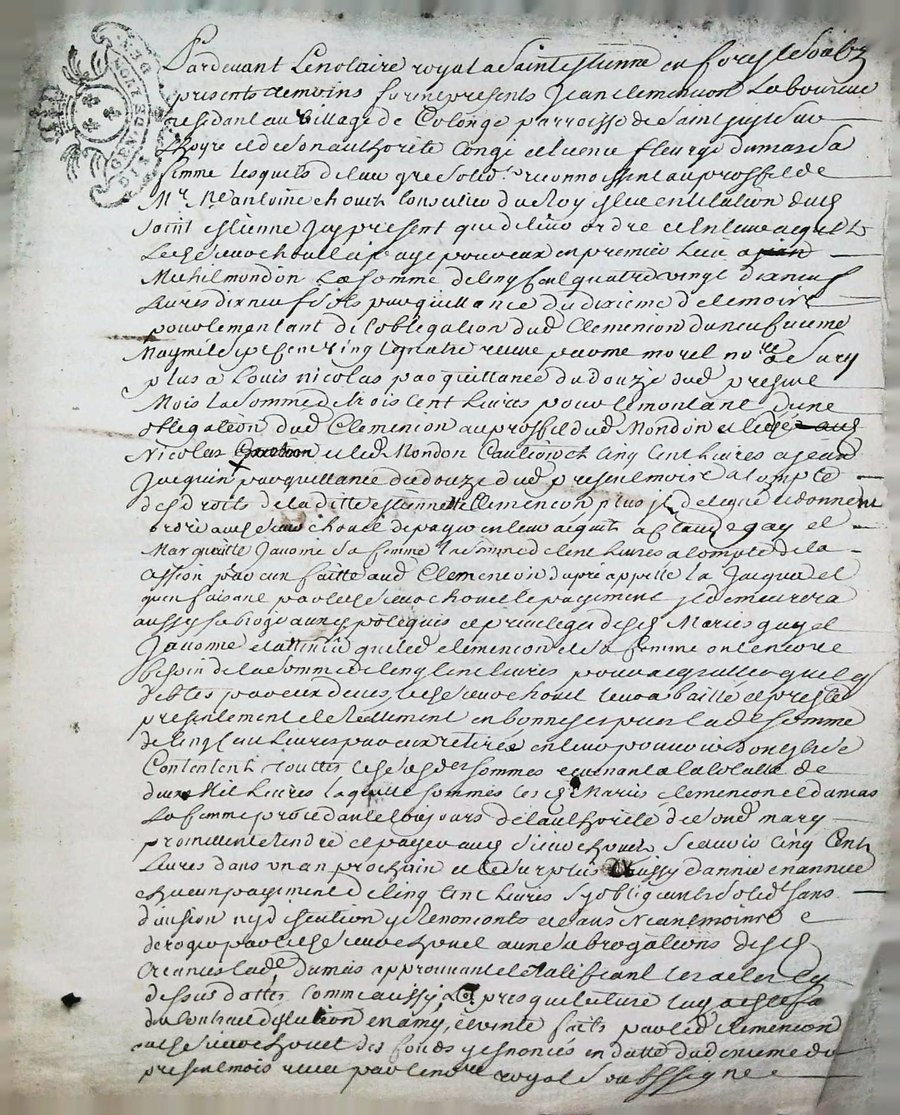 Pardevant Le notaire royal a Saint Etienne en forest Soubz
presents temoins furent presents Jean Clemencon Laboureur
residant au village de Colonge parroisse de Saint Just sur
Loyre et de son authorité Congé et licence Fleurye Dumas Sa
femme Lesquels de leur gré Solid.t reconnoissent au proffit de
Mr. Me antoine chouet Conseiller du Roy Eleu en Election dud
Saint Estienne Icy present que de leur ordre et en leur acquit
Led Sieur chouet a payé pour eux en premier Lieu a
Michel mondon La Somme de cinq cent quatre vingt dixneuf
Livres dixneuf sols par quittance du dixieme de ce mois
pour le montant de L'obligation dud Clemencon du neufvieme
May mil Sept cent vingt quatre receue par me morel nore de Sury
plus a Louis nicolas par quittance du douze dud present
Mois la Somme de trois cent Livres pour le montant d'une
obligation dud Clemencon au proffit dud Mondon
Nicolas et led Mondon Caution et cinq cent livres a Jean
Jacquin par quittance du douze dud present mois a compte
des droits de la ditte Estiennette Clemencon plus
ordre aud Sieur chouet de payer en leur acquit a Claude gay et
Marguerite Janome Sa femme La Somme de cent Livres a compte de la
cession par eux faitte aud Clemencon
qu'en faisant par led Sieur chouet le payement Il demeurera
aussy subrogé aux ypoteques et privileges desd Mariés gay et
Janome et attendu que led Clemencon et sa femme ont encore
besoin de la Somme de cinq cent livres pour acquitter quelq
debtes par eux deues led Sieur chouet leur a baillé et presté
presentement et reellement en bonnes especes lad Somme
de cinq cent Livres par eux retirée en leur pouvoir dont ils se
Contentent touttes lesd Sommes revenant a la totalle de
deux Mil Livres laquelle Somme lesd Mariés Clemencon et dumas
La femme procedant toujours de l'authorité de sond mary
promettent rendre et payer aud Sieur chouet Scavoir Cinq Cent
Livres dans un an prochain et le Surplus aussy d'année en année
chacun payement de cinq cent livres s'y obligeants Solid.t sans
division ny discution y renonceants et sans Neantmoins
deroger par led Sieur chouet aux subrogations desd
Creances lad. Dumas approuvant et ratiffiant
dessus dattés Comme aussy apres que lecture luy a esté fa
du Contrat d'election en amy, et vente faits par led Clemencon
aud Sieur chouet des fonds y enoncés en datte du deuxieme du
present mois receu par le nore royal Soubssigné